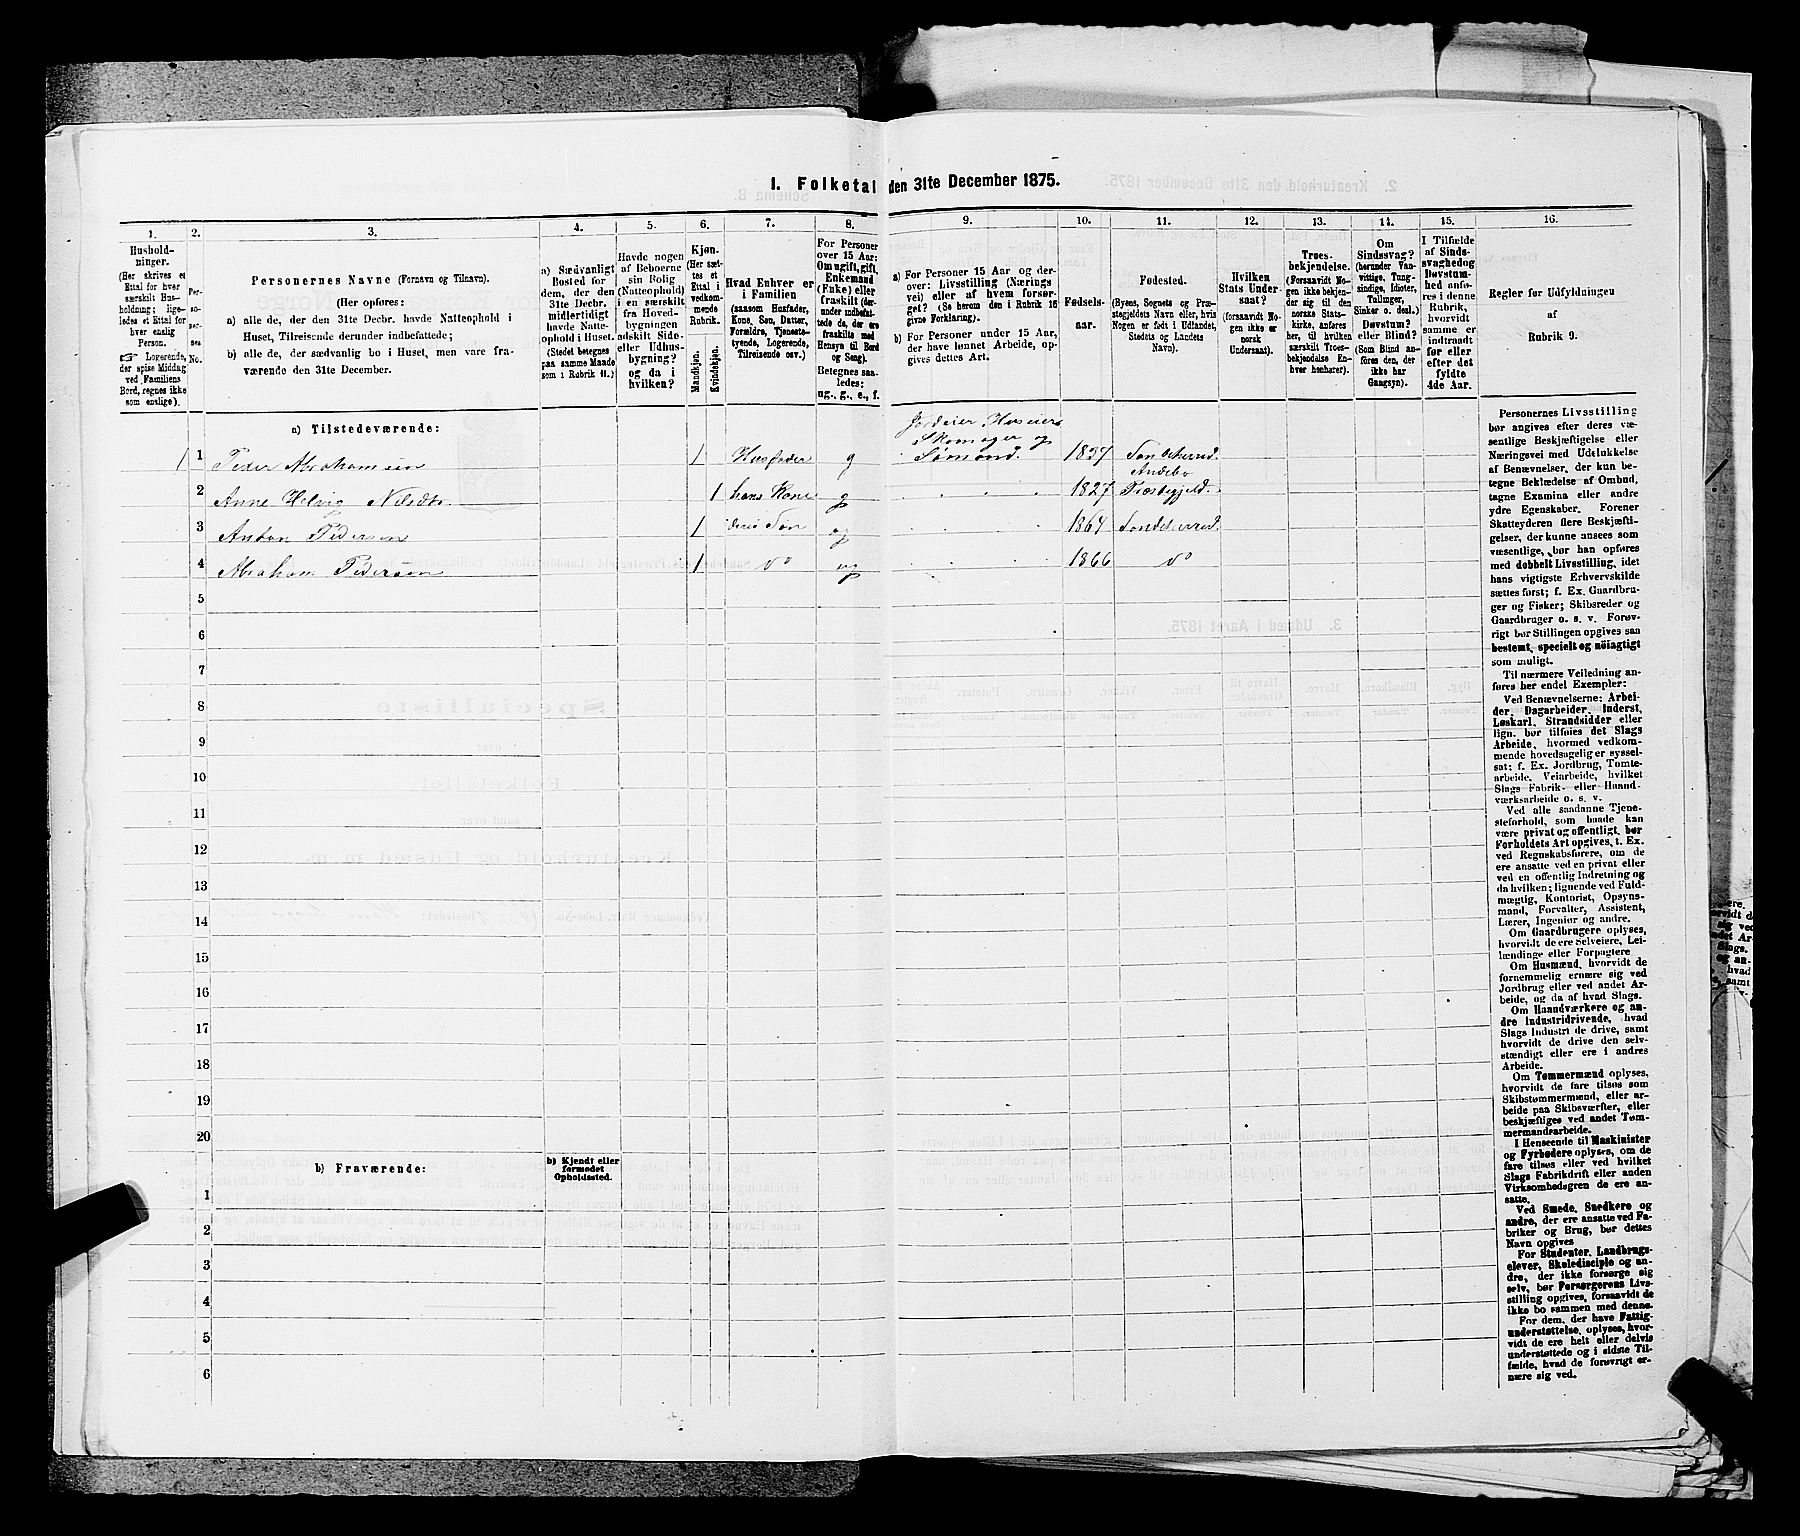 I. Folketal den 31te December 1875.
1.
2.
3.
4.
5.
6.
7.
8.
9.
10.
11.
12.
13.
14.
15.
16.
Hushold-
ninger.
(Her skrives et
Ettal for hver
særskilt Hus-
holdning; lige-
ledes et Ettal for
hver enslig
Person.
☞ Logerende,
der spise Middag
ved Familiens
Bord, regnes ikke
som enslige).
Per-
so-
ner-
nes
No.
Personernes Navne (Fornavn og Tilnavn).
(Her opføres:
a) alle de, der den 31te Decbr. havde Natteophold i
Huset, Tilreisende derunder indbefattede;
b) alle de, der sædvanlig bo i Huset, men vare fra-
værende den 31te December.
a) Sædvanligt
Bosted for
dem, der den
31te Decbr.
midlertidigt
havde Natte-
ophold i Huset.
(Stedet betegnes
paa samme Maade
som i Rubrik 11.)
Havde nogen
af Beboerne
sin Bolig
(Natteophold)
i en særskilt
fra Hoved-
bygningen
adskilt Side-
eller Udhus-
bygning?
og da i
hvilken?
Kjøn.
(Her sæt-
tes et
Ettal i
vedkom-
mende
Rubrik.
Mandkjøn.
Kvindekjøn.
Hvad Enhver er
i Familien
(saasom Husfader,
Kone, Søn, Datter,
Forældre, Tjeneste-
tyende, Logerende,
Tilreisende osv.)
For Personer
over 15 Aar:
Om ugift, gift,
Enkemand
(Enke) eller
fraskilt (der-
under indbefat-
tede de, der ere
fraskilte med
Hensyn til Bord
og Seng).
Betegnes saa-
ledes:
ug., g., e., f.
a) For Personer 15 Aar og der-
over: Livsstilling (Nærings
vei) eller af hvem forsør-
get? (Se herom den i Rubrik 16
givne Forklaring).
b) For Personer under 15 Aar,
der have lønnet Arbeide, op-
gives dettes Art.
Fødsels-
aar.
Fødested.
(Byens, Sognets og Præ-
stegjeldets Navn eller, hvis
Nogen er født i Udlandet,
Stedets og Landets
Navn).
Hvilken
Stats Under-
saat?
(forsaavidt No-
gen ikke er
norsk
Undersaat).
Troes-
bekjendelse.
(Forsaavidt No-
gen ikke bekjen-
der sig til den
norske Stats-
kirke, anføres
her, til hvilken
særskilt Troes-
bekjendelse En-
hver henhører).
Om
Sindssvag?
(herunder Van-
vittige, Tung-
sindige, Idioter,
Tullinger,
Sinker o. desl.)
Døvstum?
eller Blind?
(Som Blind an-
føres den, der
ikke har
Gangsyn).
I Tilfælde
af Sinds-
svaghed og
Døvstum-
hed anfø-
res i denne
Rubrik,
hvorvidt
samme er
indtraadt
før eller
efter det
fyldte
4de Aar.
Regler før Udfyldningen
af
Rubrik 9.
a) Tilstedeværende:
Jordeier Huseier
Skomager og
1 1 Peder Abrahamsen 1 Husfader g Sømand. 1837 Sandeherred.
Andebo
2 Anne Helvig Nilsdtr. 1 hans Kone g 1827 Præstegjeld.
3 Anton Pedersen 1 deres Søn ug 1864 Sandeherred.
4 Abraham Pedersen 1 do ug 1866 do
5
6
7
8
9
10
11
12
13
14
15
16
17
18
19
20
b) Fraværende:
b) Kjendt eller
formodet
Opholdssted.
1
2
3
4
5
6
Personernes Livsstilling
bør angives efter deres væ-
sentlige Beskjæftigelse eller
Næringsvei med Udelukkelse
af Benævnelser, der kun be-
tegne Beklædelse af Ombud,
tagne Examina eller andre
ydre Egenskaber. Forener
Skatteyderen flere Beskjæfti-
gelser, der kunne ansees som
væsentlige, bør han opføres
med dobbelt Livsstilling, idet
hans vigtigste Erhvervskilde
sættes først; f. Ex. Gaardbru-
ger og Fisker; Skibsreder og
Gaardbruger o. s. v. Forøv-
rigt bør Stillingen opgives saa
bestemt, specielt og nøiagtigt
som muligt.
Til nærmere Veiledning an-
føres her endel Exempler:
Ved Benævnelserne: Arbei-
der, Dagarbeider, Inderst,
Løskarl, Strandsidder eller
lign. bør tilføies det Slags
Arbeide, hvormed vedkom-
mende hovedsagelig er syssel-
sat; f. Ex. Jordbrug, Tomte-
arbeide, Veiarbeide, hvilket
Slags Fabrik- eller Haand-
værksarbeide o. s. v.
Ved alle saadanne Tjene-
steforhold, som baade kan
være privat og offentligt, bør
Forholdets Art opgives, t. Ex.
ved Regnskabsførere, om de
ere ansatte ved en privat eller
ved en offentlig Indretning og
da hvilken; lignende ved Fuld-
mægtig, Kontorist, Opsyns-
mand, Forvalter, Assistent,
Lærer, Ingeniør og andre.
Om Gaardbrugere oplyses,
hvorvidt de ere Selveiere, Lei-
lændinge eller Forpagtere
Om Husmænd, hvorvidt de
fornemmelig ernære sig ved
Jordbrug eller ved andet Ar-
beide, og da af hvad Slags.
Om Haandværkere og an-
dre Industridrivende, hvad
Slags Industri de drive, samt
hvorvidt de drive den selv-
stændigt eller ere i andres
Arbeide.
Om Tømmermænd oplyses,
hvorvidt de fare tilsøs som
Skibstømmermænd, eller ar-
beide paa Skibsværfter, eller
beskjæftiges ved andet Tøm-
mermandsarbeide.
I Henseende til Maskinister
og Fyrbødere oplyses, om de
fare tilsøs eller ved hvilket
Slags Fabrikdrift eller anden
Virksomhedsgren de ere an-
satte.
Ved Smede, Snedkere og
andre, der ere ansatte ved Fa-
briker og Brug, bør dettes
Navn opgives
For Studenter, Landbrugs-
elever, Skoledisciple og an-
dre, der ikke forsørge sig
selv, bør Forsørgerens Livs-
stilling opgives, forsaavidt de
ikke bo sammen med denne.
For dem, der have Fattig-
understøttelse, oplyses, hvor-
vidt de ere helt eller delvis
understøttede og i sidste Til-
fælde, hvad de forøvrigt er-
nære sig ved.